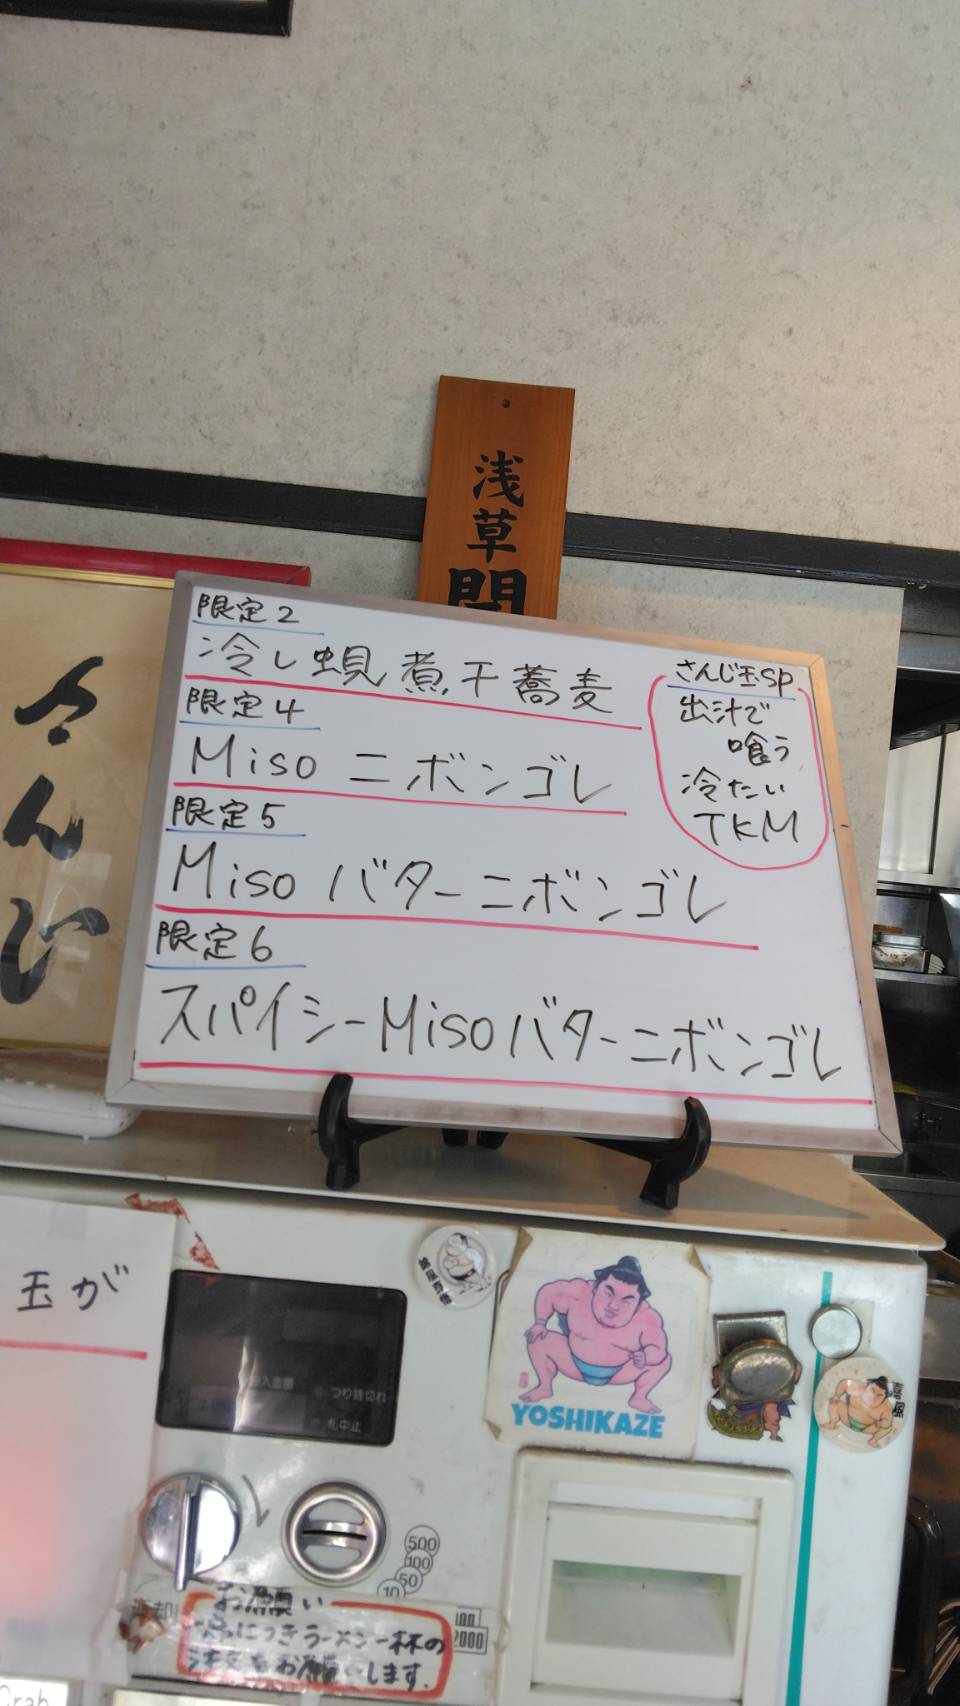 浅草
開
限定2
冷し蜆煮干蕎麦
限定4
Miso ニボンゴレ
限定5
Miso バターニボンゴレ
限定6
スパイシーMisoバターニボンゴレ
さんじ玉SP
出汁で
喰う
冷たい
TKM
さんじ
玉が
つり銭切れ
札中止
YOSHIKAZE
嘉風
500
100
50
10
2000
お願い
ラーメン一杯の
注文をお願いします。